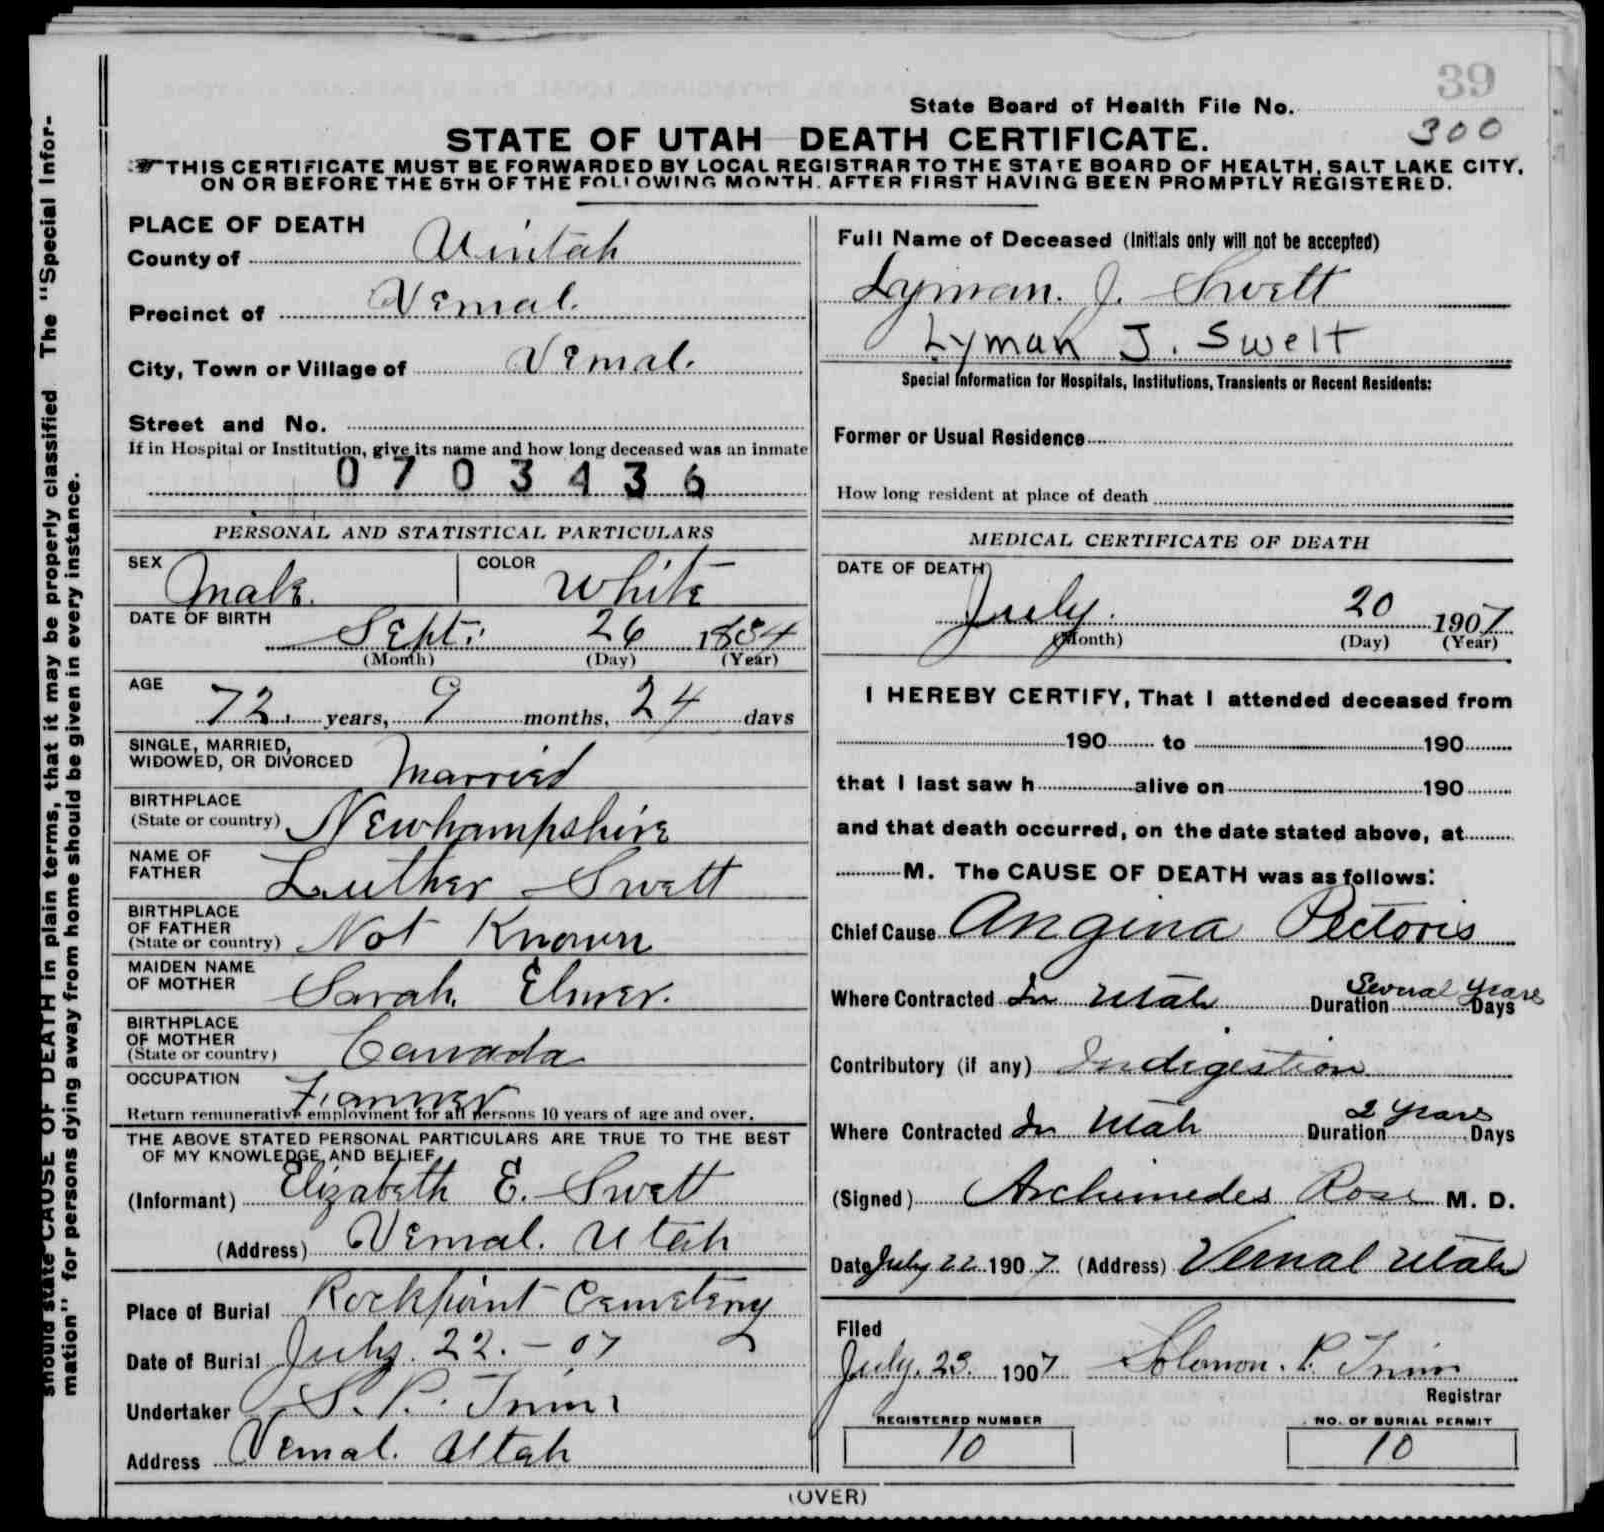 39
State Board of Health File No.
300
STATE OF UTAH DEATH CERTIFICATE.
THIS CERTIFICATE MUST BE FORWARDED BY LOCAL REGISTRAR TO THE STATE BOARD OF HEALTH, SALT LAKE CITY,
ON OR BEFORE THE 5TH OF THE FOLLOWING MONTH, AFTER FIRST HAVING BEEN PROMPTLY REGISTERED.
PLACE OF DEATH
County of Uintah
Precinct of Vernal.
City, Town or Village of Vernal.
Street and No.
If in Hospital or Institution, give its name and how long deceased was an inmate
0703436
PERSONAL AND STATISTICAL PARTICULARS
SEX Male. COLOR White
DATE OF BIRTH Sept. 26 1834
(Month) (Day) (Year)
AGE 72 years, 9 months, 24 days
SINGLE, MARRIED,
WIDOWED, OR DIVORCED Married
BIRTHPLACE
(State or country) Newhampshire
NAME OF
FATHER Luther Swett
BIRTHPLACE
OF FATHER
(State or country) Not Known
MAIDEN NAME
OF MOTHER Sarah. Elmer.
BIRTHPLACE
OF MOTHER
(State or country) Canada
OCCUPATION Farmer
Return remunerative employment for all persons 10 years of age and over.
THE ABOVE STATED PERSONAL PARTICULARS ARE TRUE TO THE BEST
OF MY KNOWLEDGE AND BELIEF
(Informant) Elizabeth E. Swett
(Address) Vernal. Utah
Place of Burial Rockpoint Cemetery
Date of Burial July. 22. - 07
Undertaker S. P. Trim
Address Vernal. Utah
Full Name of Deceased (Initials only will not be accepted)
Lyman. J. Swett
Lyman J. Swett
Special Information for Hospitals, Institutions, Transients or Recent Residents:
Former or Usual Residence
How long resident at place of death
MEDICAL CERTIFICATE OF DEATH
DATE OF DEATH
July. 20 1907
(Month) (Day) (Year)
I HEREBY CERTIFY, That I attended deceased from
190 to 190
that I last saw h alive on 190
and that death occurred, on the date stated above, at
M. The CAUSE OF DEATH was as follows:
Chief Cause Angina Pectoris
Where Contracted In Utah Duration Several Years Days
Contributory (if any) Indigestion
Where Contracted In Utah Duration 2 Years Days
(Signed) Archimedes Rose M. D.
Date July 22 1907. (Address) Vernal Utah
Filed
July. 23. 1907 Solomon. P. Trim
Registrar
REGISTERED NUMBER
10
NO. OF BURIAL PERMIT
10
(OVER)
should state CAUSE OF DEATH in plain terms, that it may be properly classified The "Special Infor-
mation" for persons dying away from home should be given in every instance.